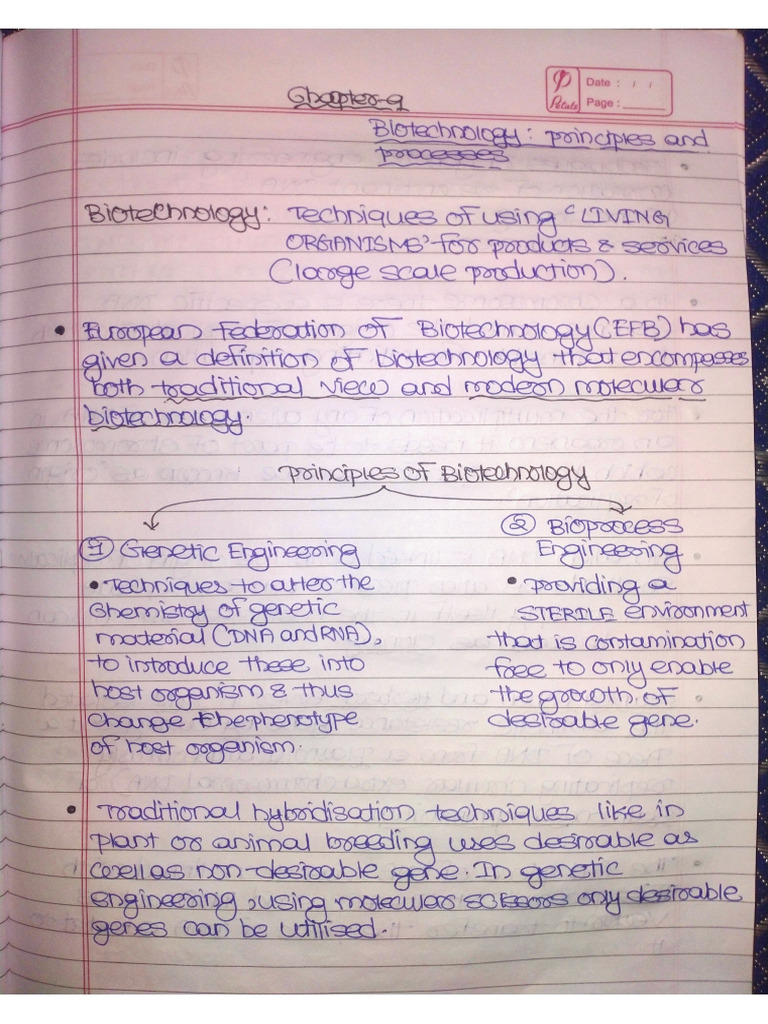 Chapter-9
Date : / /
Petals Page :
Biotechnology : principles and
processes
Biotechnology: Techniques of using 'LIVING
ORGANISMS' for products & services
(large scale production).
• European Federation of Biotechnology (EFB) has
given a definition of biotechnology that encompasses
both traditional view and modern molecular
biotechnology.
Principles of Biotechnology
① Genetic Engineering
• Techniques to alter the
Chemistry of genetic
material (DNA and RNA),
to introduce these into
host organism & thus
change the phenotype
of host organism.
② Bioprocess
Engineering
• providing a
STERILE environment
that is contamination
free to only enable
the growth of
desirable gene.
• Traditional hybridisation techniques like in
plant or animal breeding uses desirable as
well as non-desirable gene. In genetic
engineering, using molecular scissors only desirable
genes can be utilised.